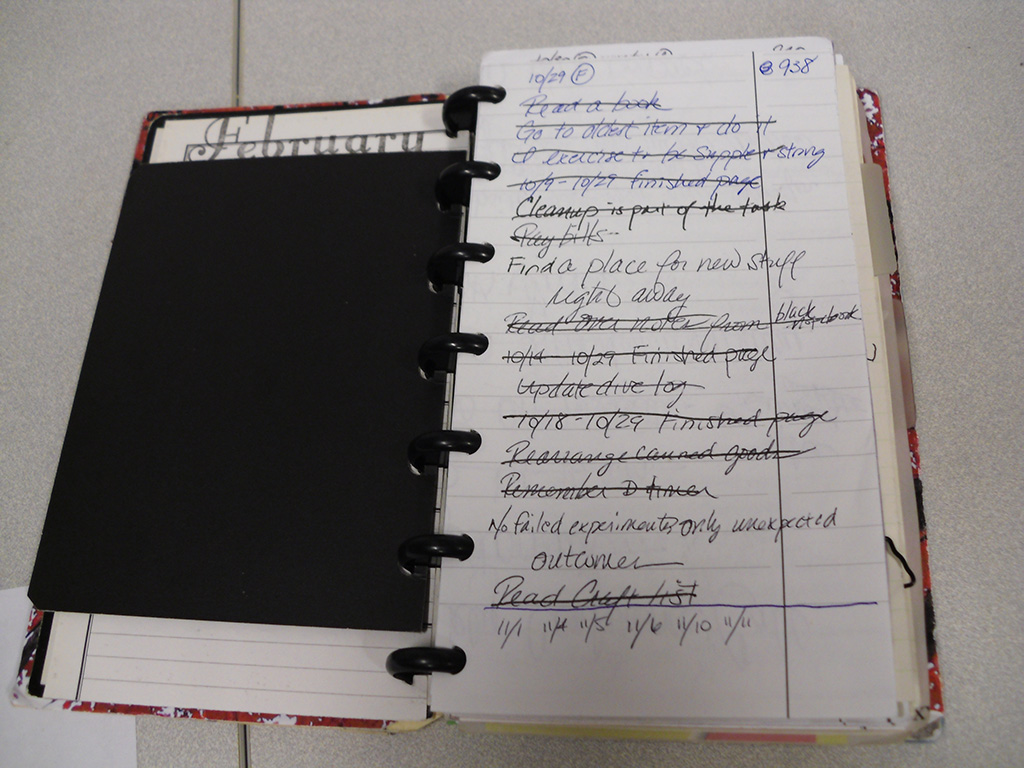 February
10/29 F 938
Read a book
Go to oldest item & do it
I exercise to be supple & strong
10/9 - 10/29 Finished page
Cleanup is part of the task
Pay bills
Find a place for new stuff
right away
Read over notes from black notebook
10/14 - 10/29 Finished page
Update dive log
10/18 - 10/29 Finished page
Rearrange canned goods
Remember D timer
No failed experiments, only unexpected
outcomes
Read Craft list
11/1 11/4 11/5 11/6 11/10 11/11